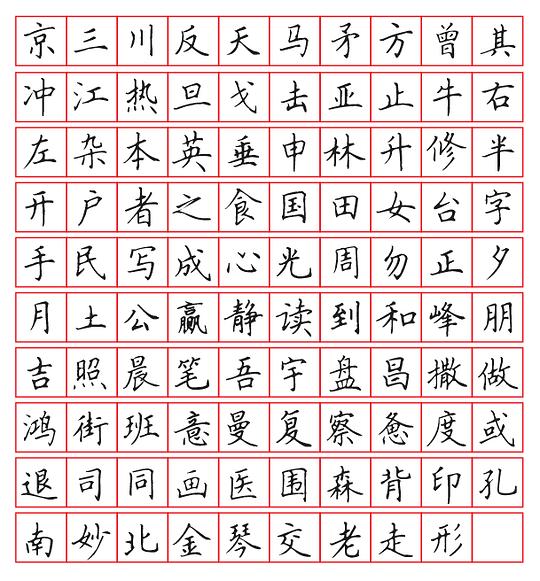 京三川反天马矛方曾其
冲江热旦戈击亚止牛右
左杂本英垂申林升修半
开户者之食国田女台字
手民写成心光周勿正夕
月土公赢静读到和峰朋
吉照晨笔吾宇盘昌撒做
鸿街班意曼复察惫度或
退司同画医围森背印孔
南妙北金琴交老走形